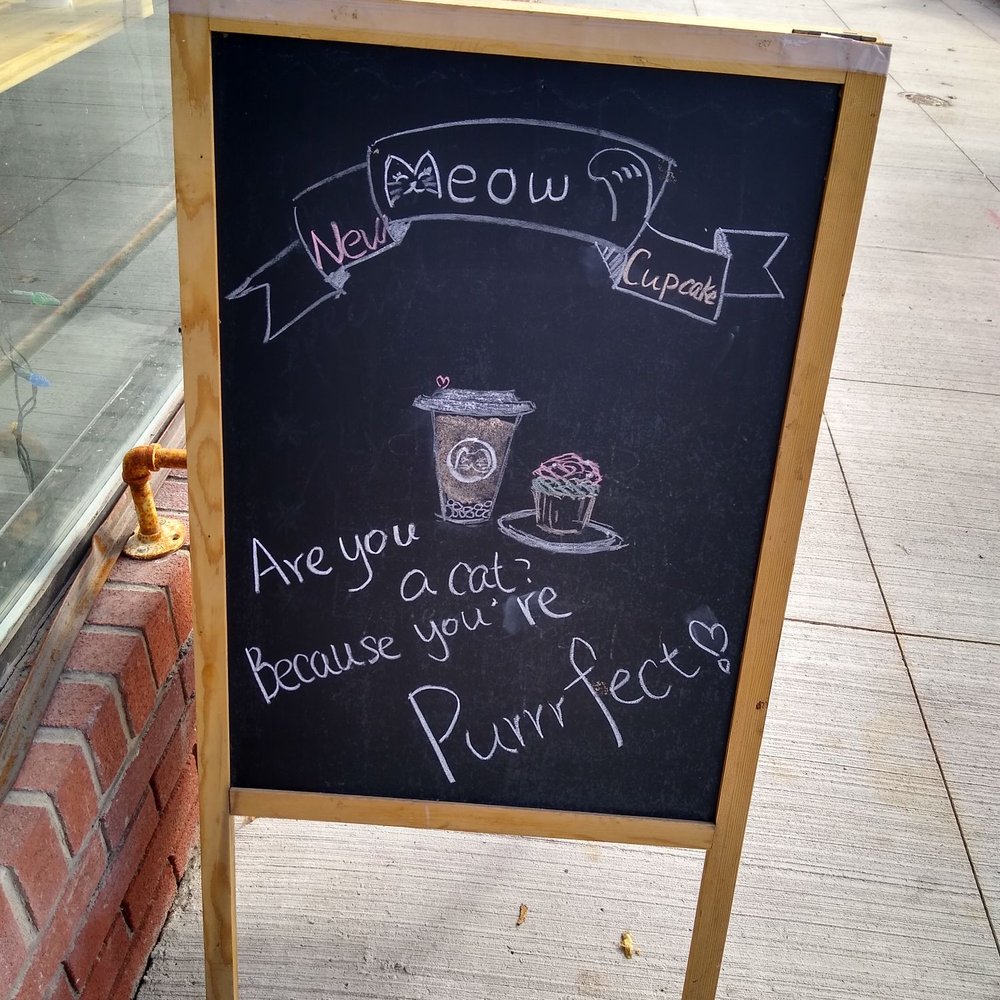 Meow
New
Cupcake
Are you
a cat?
Because you're
Purrrfect!